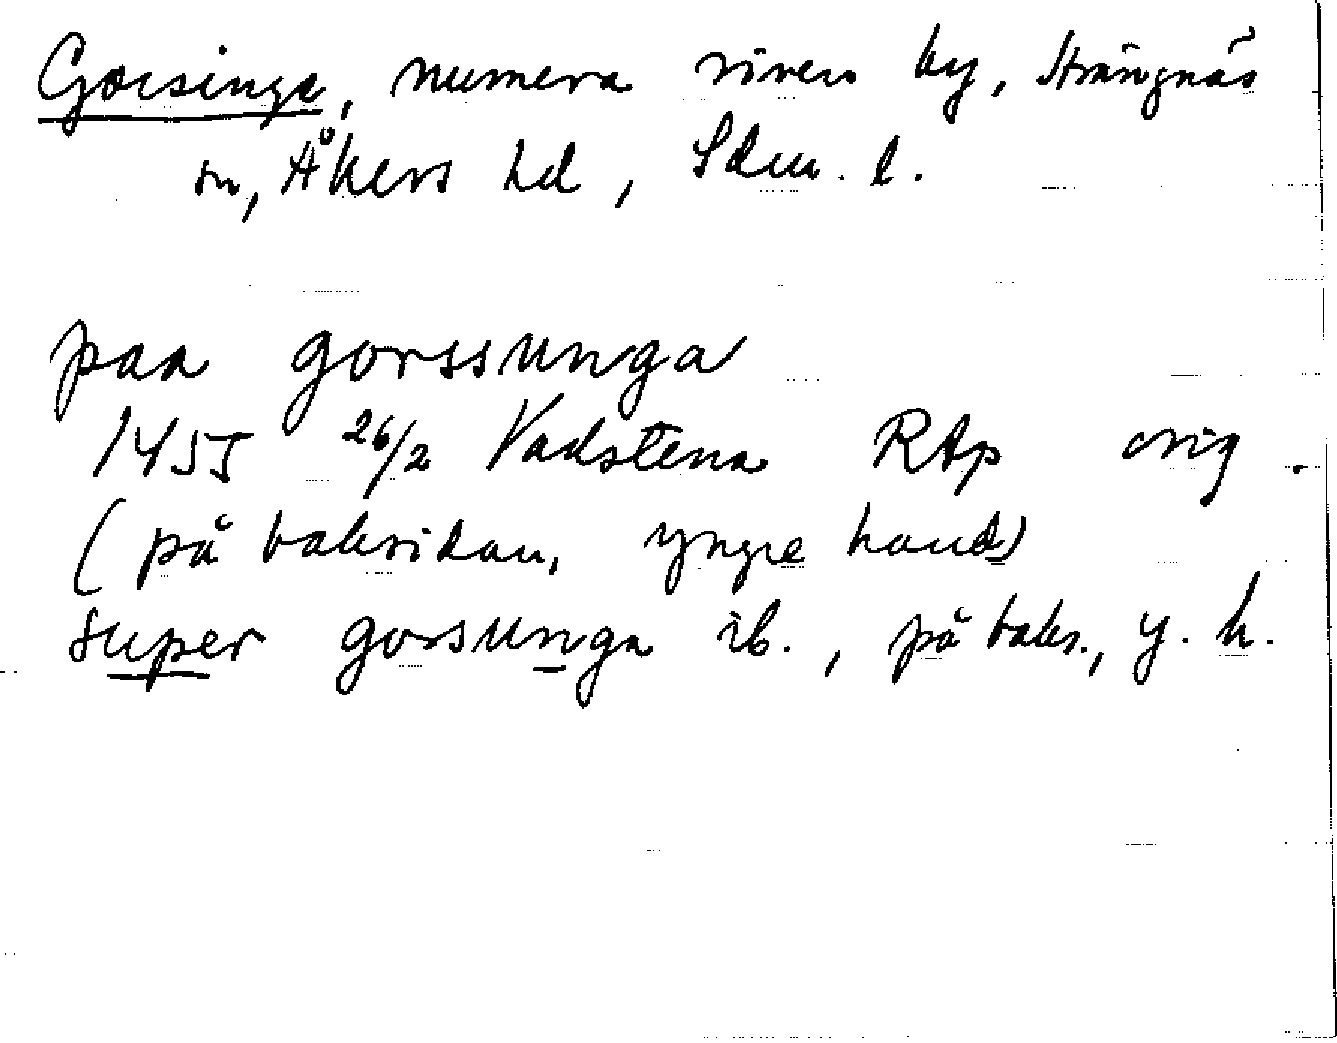 Gorsinge, numera riven by, Strängnäs
sn, Åkers hd, Sdm. l.
paa gorssunga
1455 26/2 Vadstena RAp orig.
(på baksidan, yngre hand)
super gorsunga ib., på baks., y. h.